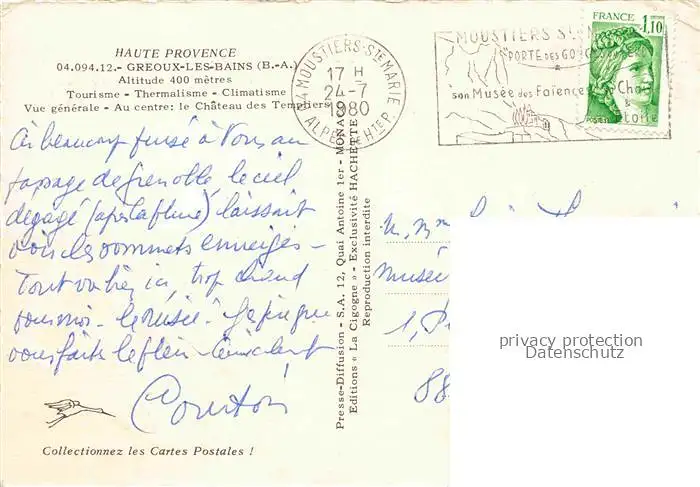 HAUTE PROVENCE
04.094.12.- GREOUX-LES-BAINS (B.-A.)
Altitude 400 mètres
Tourisme - Thermalisme - Climatisme
Vue générale - Au centre: le Château des Templiers
04 MOUSTIERS-STE MARIE
17 H
24-7
1980
ALPES DE HTE P.
MOUSTIERS STE
PORTE DES GO
son Musée des Faïences
Cha
Etoile
FRANCE
1,10
POSTES
beaucoup pensé à vous au
passage de Grenoble, le ciel
dégagé (après la pluie), laissait
voir les sommets enneigés -
Tout va bien ici, trop chaud
pour moi - le musée -
vous faites le plein
Courtois
Presse-Diffusion - S.A. 12, Quai Antoine 1er - MONACO
Editions « La Cigogne » - Exclusivité HACHETTE
Reproduction interdite
musée
1,
88
privacy protection
Datenschutz
Collectionnez les Cartes Postales !